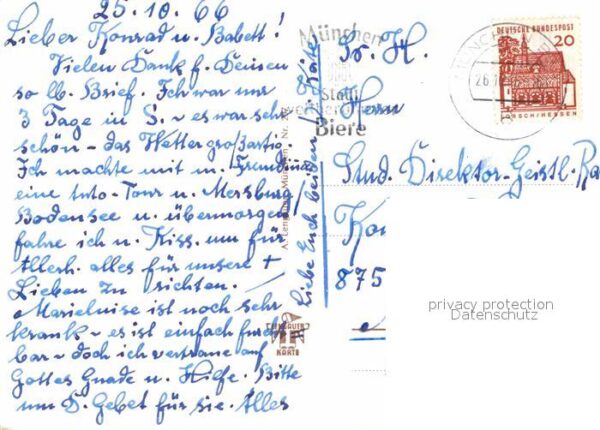 25.10.66
Lieber Konrad u. Babett!
Vielen Dank f. Deinen
so lb. Brief. Ich war nur
3 Tage in S. ~ es war sehr
schön – das Wetter großartig.
Ich machte mit m. Freundin
eine Auto-Tour n. Mersburg
Bodensee u. übermorgen
fahre ich n. Kiss. um für
Allerh. alles für unsere +
Lieben zu richten.
Marieluise ist noch sehr
krank ~ es ist einfach furcht
bar ~ doch ich vertraue auf
Gottes Gnade u. Hilfe. Bitte
um D. Gebet für sie. Alles
Liebe Euch beiden / Käte
München
Stadt
Biere
München
DEUTSCHE BUNDESPOST
20
LORSCH/HESSEN
26.
Sr. H.
Herrn
Stud. Direktor-Geistl. Ra
Kon
875
KARTE
privacy protection
Datenschutz